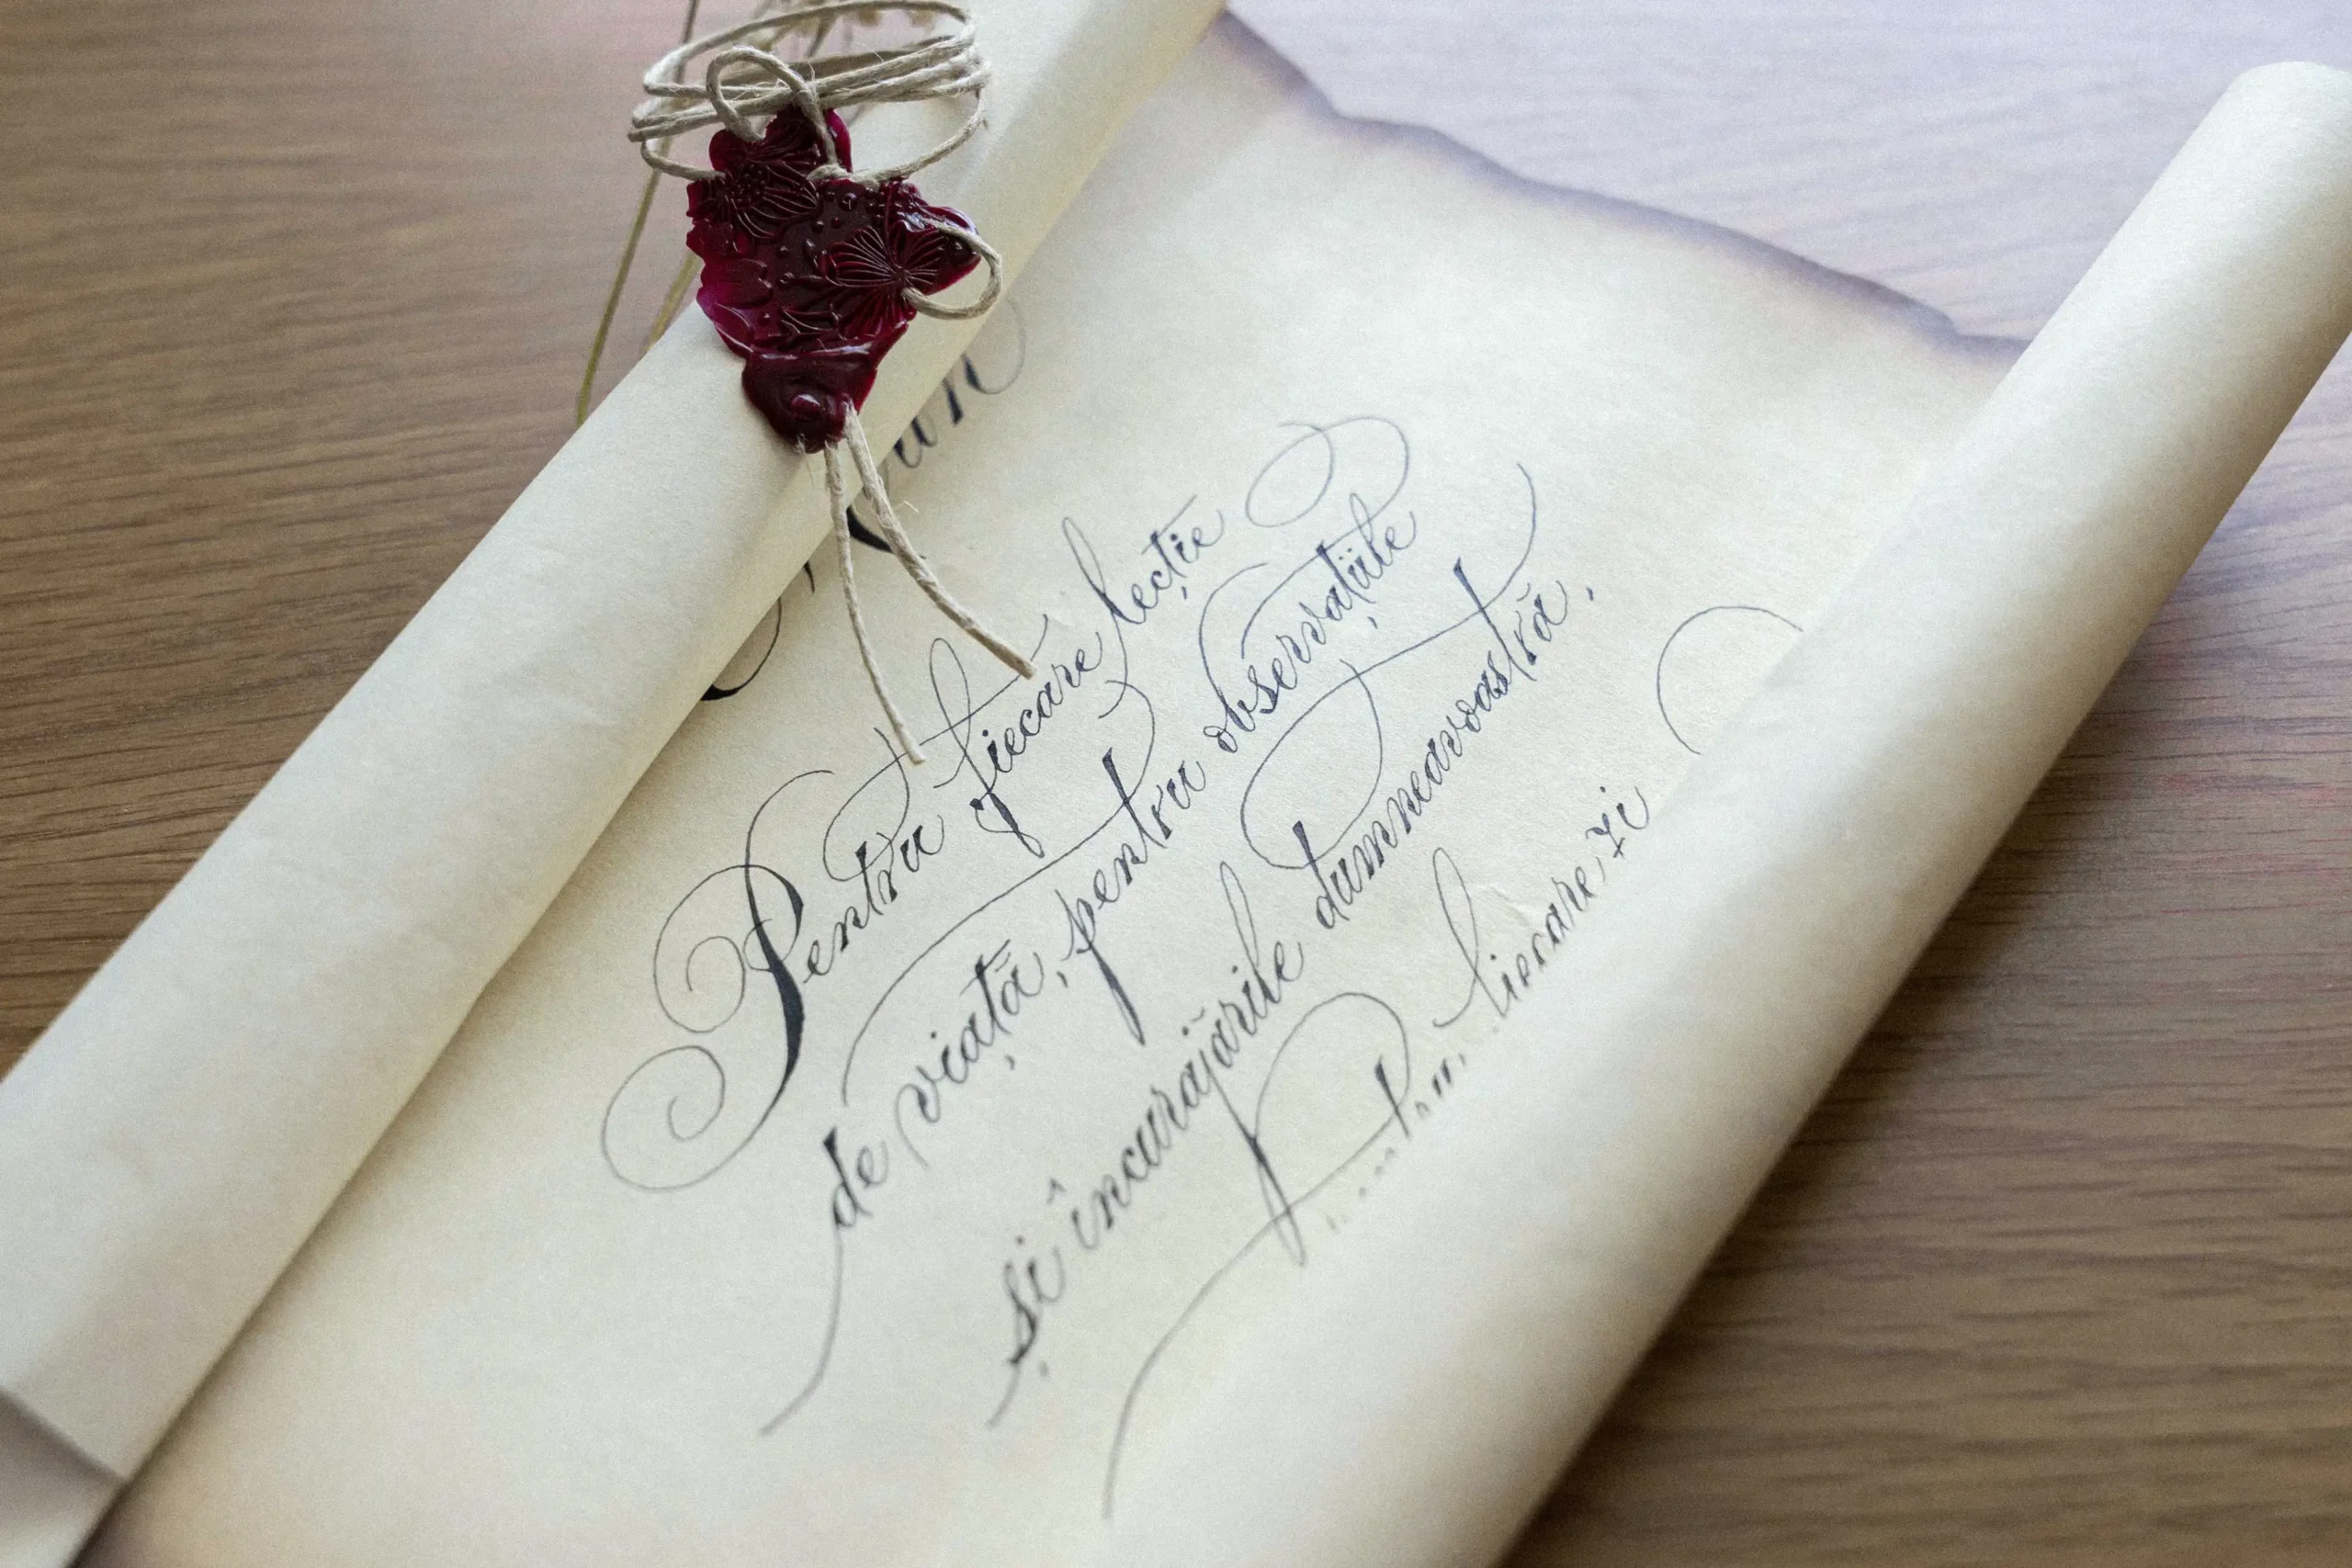 Pentru fiecare lecție
de viață, pentru observațiile
și încurajările dumneavoastră,
fiecare zi